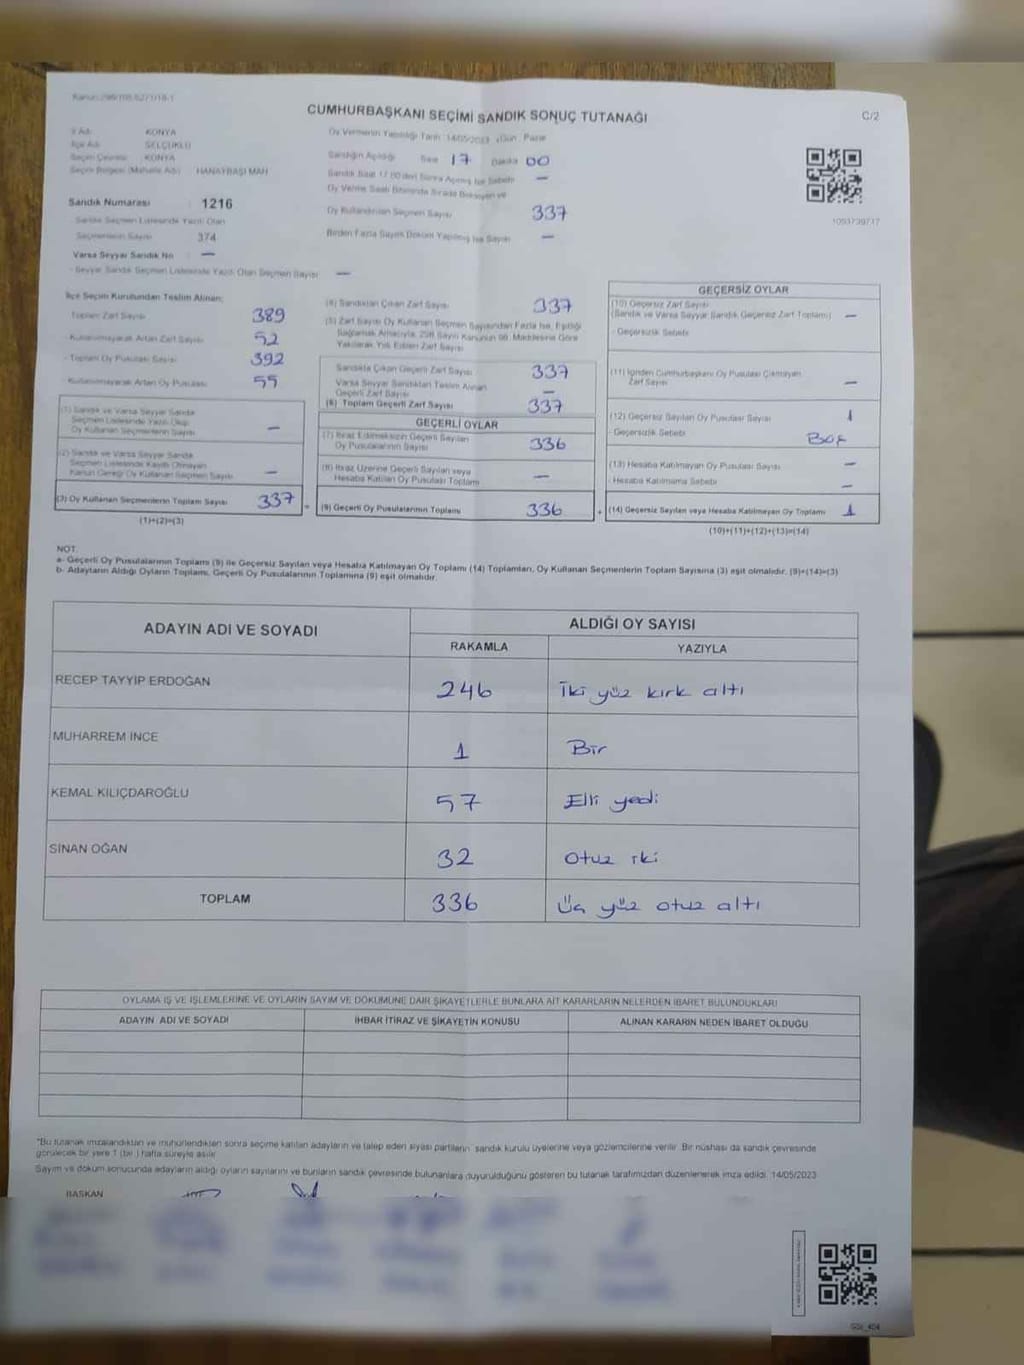 Kanun:298/105-6271/18-1
CUMHURBAŞKANI SEÇİMİ SANDIK SONUÇ TUTANAĞI
C/2
İl Adı : KONYA
İlçe Adı : SELÇUKLU
Seçim Çevresi : KONYA
Seçim Bölgesi (Mahalle Adı) : HANAYBAŞI MAH
Sandık Numarası : 1216
Sandık Seçmen Listesinde Yazılı Olan
Seçmenlerin Sayısı : 374
Varsa Seyyar Sandık No : —
- Seyyar Sandık Seçmen Listesinde Yazılı Olan Seçmen Sayısı : —
Oy Vermenin Yapıldığı Tarih : 14/05/2023 Gün : Pazar
Sandığın Açıldığı Saat 17 Dakika 00
Sandık Saat 17.00'den Sonra Açılmış İse Sebebi —
Oy Verme Saati Bitiminde Sırada Bekleyen ve
Oy Kullandırılan Seçmen Sayısı 337
Birden Fazla Sayım Döküm Yapılmış İse Sayısı —
1093739717
İlçe Seçim Kurulundan Teslim Alınan;
Toplam Zarf Sayısı 389
- Kullanılmayarak Artan Zarf Sayısı 52
- Toplam Oy Pusulası Sayısı 392
- Kullanılmayarak Artan Oy Pusulası 55
(1) Sandık ve Varsa Seyyar Sandık
Seçmen Listesinde Yazılı Olup
Oy Kullanan Seçmenlerin Sayısı —
(2) Sandık ve Varsa Seyyar Sandık
Seçmen Listesinde Kayıtlı Olmayan
Kanun Gereği Oy Kullanan Seçmen Sayısı —
(3) Oy Kullanan Seçmenlerin Toplam Sayısı 337
(1)+(2)=(3)
(4) Sandıktan Çıkan Zarf Sayısı 337
(5) Zarf Sayısı Oy Kullanan Seçmen Sayısından Fazla İse, Eşitliği
Sağlamak Amacıyla, 298 Sayılı Kanunun 98. Maddesine Göre
Yakılarak Yok Edilen Zarf Sayısı
Sandıkta Çıkan Geçerli Zarf Sayısı 337
Varsa Seyyar Sandıktan Teslim Alınan
Geçerli Zarf Sayısı —
(6) Toplam Geçerli Zarf Sayısı 337
GEÇERLİ OYLAR
(7) İtiraz Edilmeksizin Geçerli Sayılan
Oy Pusulalarının Sayısı 336
(8) İtiraz Üzerine Geçerli Sayılan veya
Hesaba Katılan Oy Pusulası Toplamı —
(9) Geçerli Oy Pusulalarının Toplamı 336
GEÇERSİZ OYLAR
(10) Geçersiz Zarf Sayısı
(Sandık ve Varsa Seyyar Sandık Geçersiz Zarf Toplamı) —
- Geçersizlik Sebebi
(11) İçinden Cumhurbaşkanı Oy Pusulası Çıkmayan
Zarf Sayısı —
(12) Geçersiz Sayılan Oy Pusulası Sayısı 1
- Geçersizlik Sebebi Boş
(13) Hesaba Katılmayan Oy Pusulası Sayısı —
- Hesaba Katılmama Sebebi —
(14) Geçersiz Sayılan veya Hesaba Katılmayan Oy Toplamı 1
(10)+(11)+(12)+(13)=(14)
NOT:
a- Geçerli Oy Pusulalarının Toplamı (9) ile Geçersiz Sayılan veya Hesaba Katılmayan Oy Toplamı (14) Toplamları, Oy Kullanan Seçmenlerin Toplam Sayısına (3) eşit olmalıdır. (9)+(14)=(3)
b- Adayların Aldığı Oyların Toplamı, Geçerli Oy Pusulalarının Toplamına (9) eşit olmalıdır.
ADAYIN ADI VE SOYADI
ALDIĞI OY SAYISI
RAKAMLA YAZIYLA
RECEP TAYYİP ERDOĞAN 246 İki yüz kırk altı
MUHARREM İNCE 1 Bir
KEMAL KILIÇDAROĞLU 57 Elli yedi
SİNAN OĞAN 32 Otuz iki
TOPLAM 336 Üç yüz otuz altı
OYLAMA İŞ VE İŞLEMLERİNE VE OYLARIN SAYIM VE DÖKÜMÜNE DAİR ŞİKAYETLERLE BUNLARA AİT KARARLARIN NELERDEN İBARET BULUNDUKLARI
ADAYIN ADI VE SOYADI İHBAR İTİRAZ VE ŞİKAYETİN KONUSU ALINAN KARARIN NEDEN İBARET OLDUĞU
"Bu tutanak imzalandıktan ve mühürlendikten sonra seçime katılan adayların ve talep eden siyasi partilerin sandık kurulu üyelerine veya gözlemcilerine verilir. Bir nüshası da sandık çevresinde
görülecek bir yere 1 (bir ) hafta süreyle asılır.
Sayım ve döküm sonucunda adayların aldığı oyların sayılarını ve bunların sandık çevresinde bulunanlara duyurulduğunu gösteren bu tutanak tarafımızdan düzenlenerek imza edildi. 14/05/2023
BAŞKAN